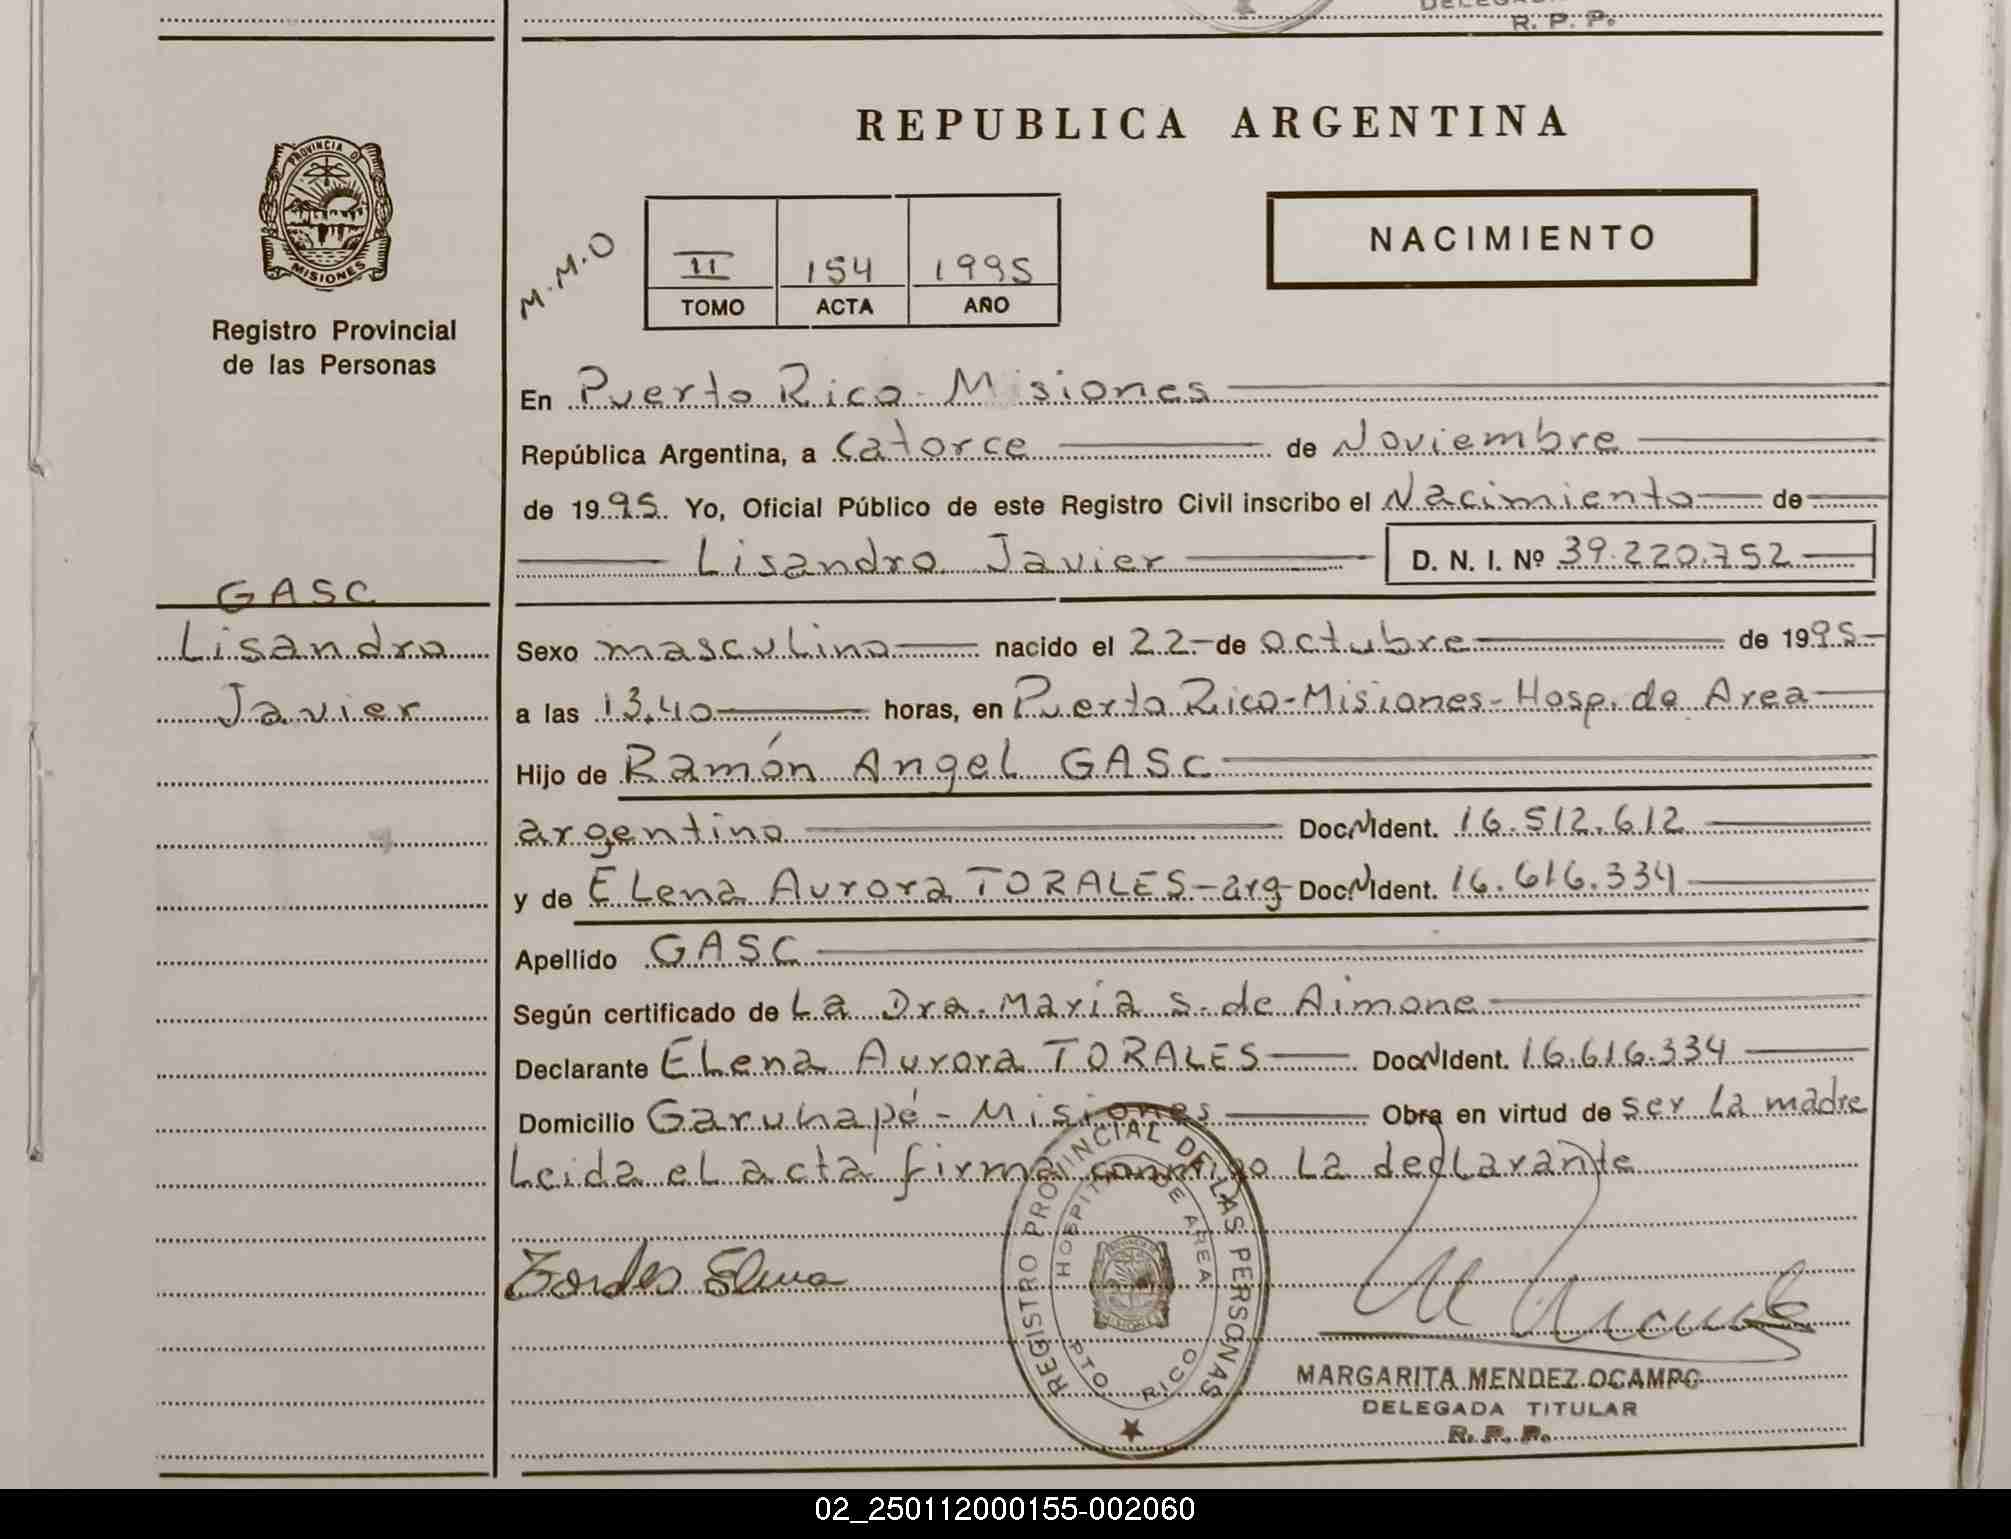 R. P. P.
PROVINCIA D
MISIONES
Registro Provincial
de las Personas
GASC
Lisandro
Javier
REPUBLICA ARGENTINA
M.M.O
II 154 1995
TOMO ACTA AÑO
NACIMIENTO
En Puerto Rico - Misiones
República Argentina, a catorce de Noviembre
de 1995. Yo, Oficial Público de este Registro Civil inscribo el Nacimiento de
Lisandro Javier D. N. I. Nº 39.220.752
Sexo masculino nacido el 22 - de octubre de 1995
a las 13.40 horas, en Puerto Rico - Misiones - Hosp. de Area
Hijo de Ramón Angel GASC
argentino Doc.N.Ident. 16.512.612
y de Elena Aurora TORALES - arg Doc.N.Ident. 16.616.334
Apellido GASC
Según certificado de La Dra. María S. de Aimone
Declarante Elena Aurora TORALES Doc.N.Ident. 16.616.334
Domicilio Garuhapé - Misiones Obra en virtud de ser la madre
Leida el acta firma conmigo la declarante
REGISTRO PROVINCIAL DE LAS PERSONAS
HOSPITAL DE AREA
PTO. RICO
MARGARITA MENDEZ OCAMPO
DELEGADA TITULAR
R. P. P.
02_250112000155-002060